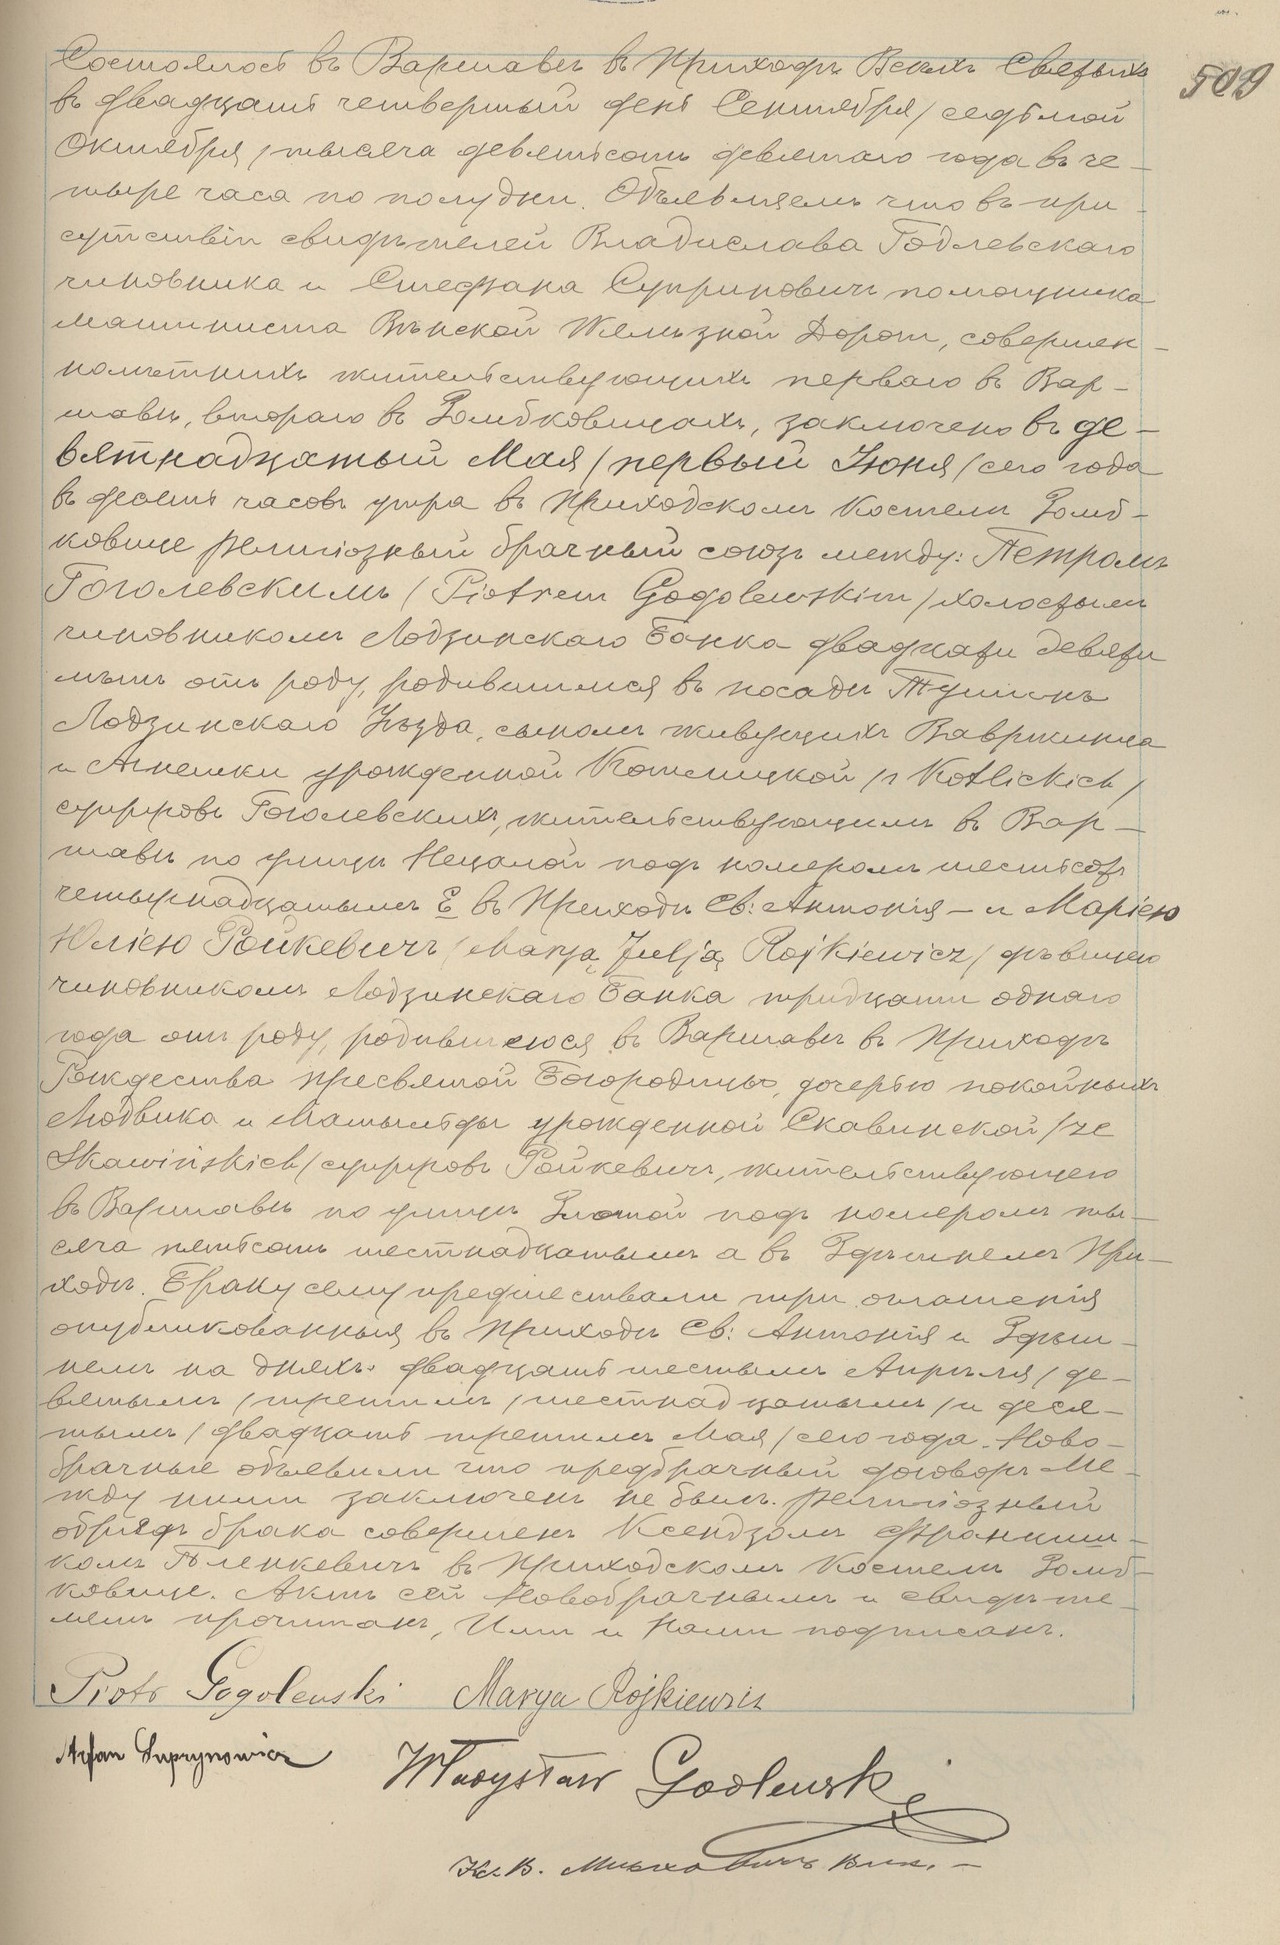 509
Состоялось въ Варшавѣ въ Приходѣ Всѣхъ Святыхъ
въ двадцать четвертый день Сентября / седьмой
Октября / тысяча девятьсотъ девятаго года въ че-
тыре часа по полудни. Объявляемъ что въ при-
сутствіи свидѣтелей Владислава Годлевскаго
чиновника и Стефана Супринович помощника
машиниста Вѣнской Желѣзной Дороги, совершен-
нолѣтнихъ жительствующихъ перваго въ Вар-
шавѣ, втораго въ Зомбковицахъ, заключенъ въ де-
вятнадцатый Мая / первый Іюня / сего года
въ десять часовъ утра въ Приходскомъ Костелѣ Зомб-
ковице религіозный брачный союзъ между: Петромъ
Гоголевскимъ / Piotrem Gogolewskim / холостымъ
чиновникомъ Лодзинскаго Банка двадцати девяти
лѣтъ отъ роду, родившимся въ посадѣ Тушинъ
Лодзинскаго Уѣзда, сыномъ живущихъ Вавржинца
и Агнешки урожденной Котлицкой / z Kotlickich /
супруговъ Гоголевскихъ, жительствующимъ въ Вар-
шавѣ по улицѣ Нецалой подъ номеромъ шестьсотъ
четырнадцатымъ Е въ Приходѣ Св: Антонія – и Маріею
Юліею Ройкевичъ / Maryą Juliją Rojkiewicz / дѣвицею
чиновникомъ Лодзинскаго Банка тридцати одного
года отъ роду, родившеюся въ Варшавѣ въ Приходѣ
Рождества Пресвятой Богородицы, дочерью покойныхъ
Людвика и Матыльды урожденной Скавинской / ze
Skawińskich / супруговъ Ройкевичъ, жительствующею
въ Варшавѣ по улицѣ Злотой подъ номеромъ ты-
сяча пятьсотъ шестнадцатымъ а въ Здѣшнемъ При-
ходѣ. Браку сему предшествовали три оглашенія
опубликованныя въ Приходѣ Св: Антонія и Здѣш-
немъ на дняхъ: двадцать шестымъ Апрѣля / де-
вятымъ / третьимъ / шестнадцатымъ / и деся-
тымъ / двадцать третьимъ Мая / сего года. Ново-
брачные объявили что предбрачный договоръ ме-
жду ними заключенъ не былъ. Религіозный
обрядъ брака совершенъ Ксендзомъ Францишк-
комъ въ Приходскомъ Костелѣ Зомб-
ковице. Актъ сей Новобрачнымъ и свидѣте-
лямъ прочитанъ, Ими и Нами подписанъ.
Piotr Gogolewski Marya Rojkiewicz
Stefan Suprynowicz Władysław Godlewski
Кс. В. вик. –